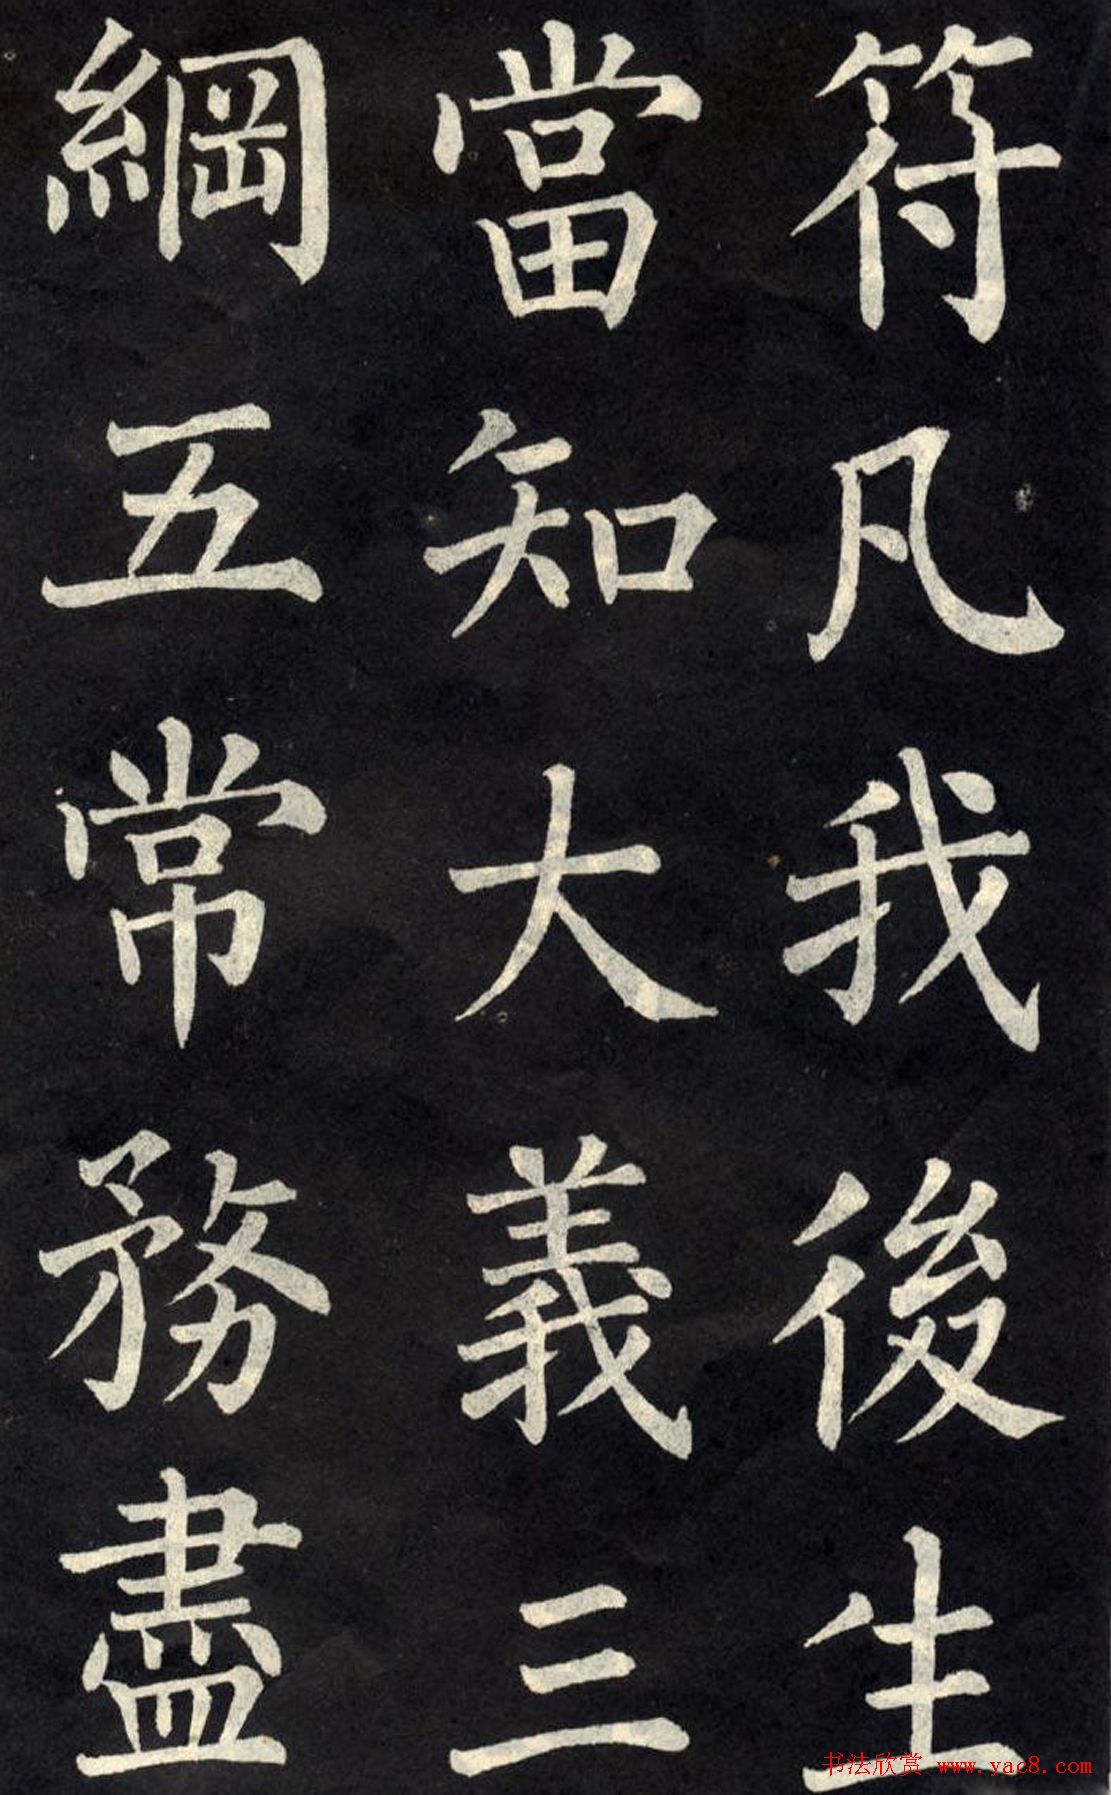 符凡我後生
當知大義三
綱五常務盡
书法欣赏 www.yac8.com